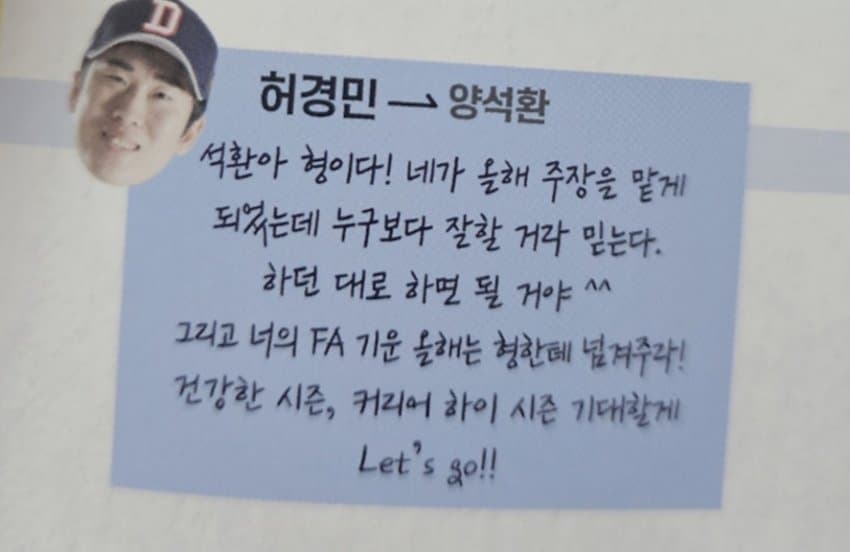 D
허경민 → 양석환
석환아 형이다! 네가 올해 주장을 맡게
되었는데 누구보다 잘할 거라 믿는다.
하던 대로 하면 될 거야 ^^
그리고 너의 FA 기운 올해는 형한테 넘겨주라!
건강한 시즌, 커리어 하이 시즌 기대할게
Let's go!!